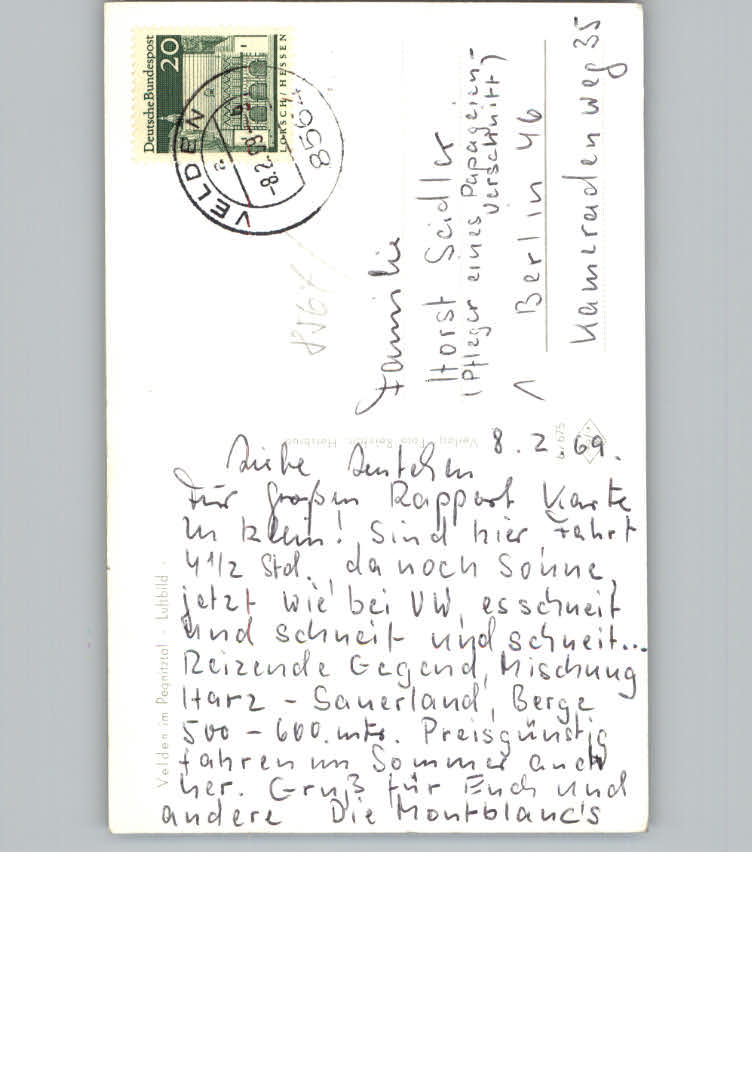 Deutsche Bundespost
20
LORSCH/HESSEN
8564
VELDEN
a
-8.2.69
8567
Familie
Horst Seidler
(Pfleger eines Papageien-
verschnitt)
Berlin 46
Kameradenweg 35
8.2.69.
Liebe
Für großen Rapport Karte
zu klein! Sind hier Fahrt
4 1/2 Std., da noch Sonne,
jetzt wie bei VW, es schneit
und schneit und schneit...
Reizende Gegend, Mischung
Harz - Sauerland, Berge
500 - 600 mtr. Preisgünstig
fahren im Sommer auch
her. Gruß für Euch und
andere Die Montblanc's
Velden im Pegnitztal - Luftbild -
Verlag Foto
6/675